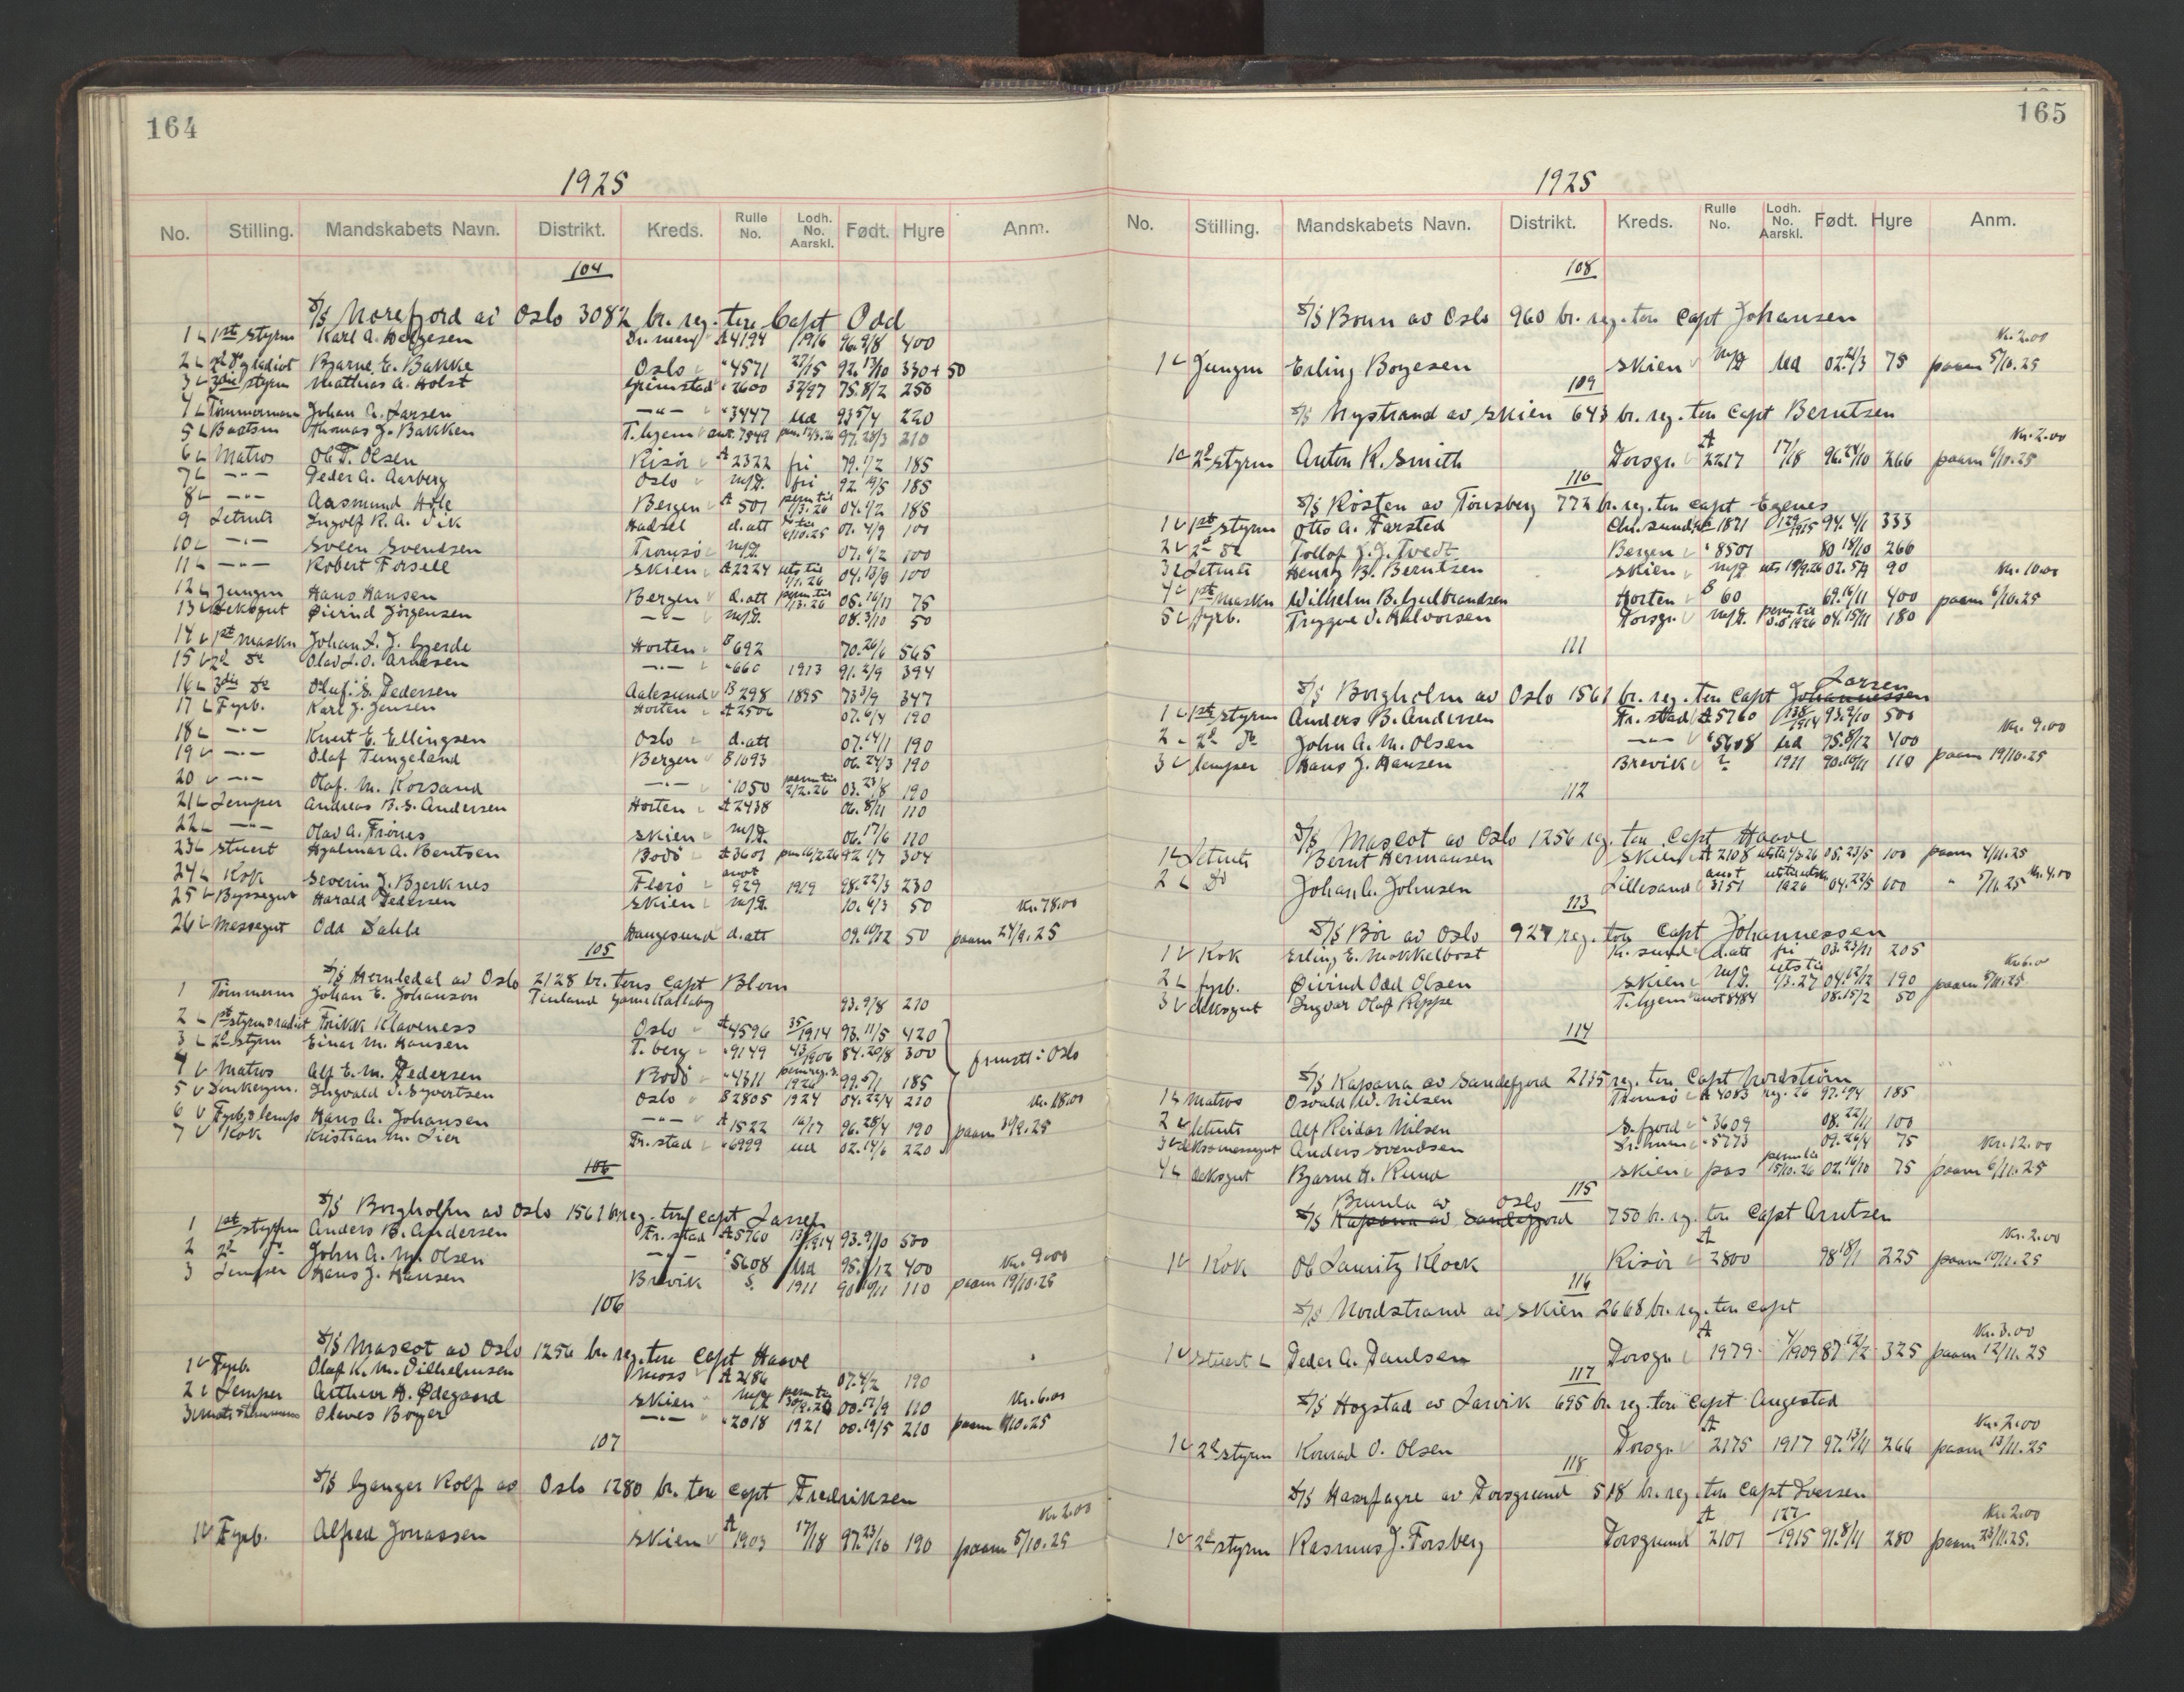 164
1925
No. Stilling. Mandskabets Navn. Distrikt. Kreds. Rulle No. Lodh. No. Aarskl. Født. Hyre Anm.
104
S/S Norefjord av Oslo 3082 br. reg. tons Capt Odd
1 1st styrm Karl A. Helgesen Dr.men A 4194 /1916 96.9/8 400
2 2d Do Bjarne E. Bakke Oslo " 4571 27/15 92.13/10 330+50
3 3die styrm Mathias A. Holst Grimstad " 2600 32/97 75.8/2 250
4 Tømmermann Johan A. Larsen —"— " 3447 Ud 93 5/4 220
5 Baatsm Thomas J. Bakken T.hjem ant. 7849 97.28/3 210
6 Matros Ole T. Olsen Risör A 2322 fri 79.1/2 185
7 —"— Peder A. Aarberg Oslo m/p. fri 92 19/5 185
8 —"— Aasmund Hole Bergen A 501 perm til 1/3.26 04.9/2 185
9 Letmts Ingolf R. A. Vik Hadsel d.att 07.4/9 100
10 —"— Sveen Svendsen Tromsö m/p. 07.6/2 100
11 —"— Robert Forsell Skien A 2224 uts til 1/1.26 04.13/9 100
12 Jungm Hans Hansen Bergen d.att perm til 1/13.26 06.16/11 75
13 Deksgut Øivind Jörgensen —"— m/p. 08.3/10 50
14 1st Maskn Johan A. J. Gjerde Horten B 692 70.26/6 565
15 2d Do Olav L. O. Arnesen —"— " 660 1913 91.2/9 394
16 3die Do Oluf S. Pedersen Aalesund B 298 1895 73 3/9 347
17 Fyrb. Karl J. Jensen Horten A 2506 07.6/4 190
18 —"— Knut E. Ellingsen Oslo d.att 07.14/11 190
19 —"— Olaf Tengeland Bergen B 1093 06.24/3 190
20 —"— Olaf. M. Korsand —"— " 1050 perm til 2/2.26 03.23/8 190
21 Lemper Andreas B. S. Andersen Horten A 2438 06.8/11 110
22 —"— Olav A. Frönes Skien m/p. 06.17/6 110
23 Stuert Hjalmar A. Bentsen Bodö A 3601 92 1/7 304
24 Kok Severin J. Bjerknes Florö anot 929 1919 98.22/3 230
25 Byssegut Harald Pedersen Skien m/p. 10.6/3 50 Kr. 78.00
26 Messegut Odd Sable Haugesund d.att 09.10/12 50 paam 24/9.25
105
S/S Hemledal av Oslo 2128 br. tons Capt Blom
1 Tömmerm Johan E. Johanson Finland Gamlkarleby 93.9/8 210
2 1st styrm o radiot Frikk Klaveness Oslo A 4596 35/1914 93.11/5 420
3 2d styrm Einar M. Hansen T.berg " 9149 43/1906 84.20/8 300
4 Matros Alf E. M. Pedersen Bodö " 4311 1926 99.5/1 185
5 Donkeym. Ingvald S. Syvertsen Oslo B 2805 1924 04.22/4 210 Kr. 18.00
6 Fyrb. o lemp Hans A. Johansen —"— A 1522 16/17 96.28/4 190 paam 30/9.25
7 Kok Kristian M. Lier Fr.stad " 6999 Ud 02.14/6 220
106
S/S Borgholm av Oslo 1561 br. reg. tons Capt Larsen
1 1st styrm Anders B. Andersen Fr.stad A 5760 138/1914 93.9/10 500
2 2d Do John A. M. Olsen —"— " 5608 Ud 95.8/12 400 Kr. 9.00
3 Lemper Hans J. Hansen Brevik 1911 90 10/11 110 paam 19/10.25
106
S/S Mascot av Oslo 1256 br. reg. tons Capt Haave
1 Fyrb. Olaf K. M. Vilhelmsen Moss A 2186 07.4/2 190
2 Lemper Arthur H. Ødegaard Skien m/p perm til 00.17/9 110 Kr. 6.00
3 Olaves Boyer —"— " 2018 1921 00.19/5 210 paam /10.25
107
S/S Ganger Rolf av Oslo 1280 br. tons Capt Fredriksen
Kr. 2.00
1 Fyrb. Alfred Jonassen Skien A 1903 17/18 97.23/10 190 paam 5/10.25
165
1925
No. Stilling. Mandskabets Navn. Distrikt. Kreds. Rulle No. Lodh. No. Aarskl. Født. Hyre Anm.
108
S/S Bonn av Oslo 960 br. reg. tons Capt Johansen
Kr. 2.00
1 Jungm Erling Borgesen Skien m/p Ud 02.21/3 75 paam 5/10.25
109
S/S Nystrand av Skien 643 br. reg. ton Capt Berntsen
Kr. 2.00
1 2d styrm Anton R. Smith Porsgr. A 2217 17/18 96.24/10 266 paam 6/10.25
110
S/S Rösten av Tönsberg 772 br. reg. ton Capt Egenes
1 1st styrm Otto A. Farsted Chr.sund A 1821 129/1915 94.4/1 333
2 2d Do Tollof J. J. Tvedt Bergen " 8501 80 18/10 266
3 Letmts Henry B. Berntsen Skien m/p uts 19/9.26 02.5/7 90 Kr. 10.00
4 1st Maskn Wilhelm B. Gulbrandsen Horten B 60 69.16/11 400 paam 6/10.25
5 fyrb. Trygve O. Halvorsen Porsgr. m/p. perm til 1926 04.15/11 180
111
S/S Borgholm av Oslo 1561 br. reg. ton Capt Johannessen Larsen
1 1st styrm Anders B. Andersen Fr.stad A 5760 138/1914 93.9/10 500
2 2d Do John A. M. Olsen —"— " 5608 Ud 95.8/12 400 Kr. 9.00
3 lemper Hans J. Hansen Brevik ? 1911 90.10/11 110 paam 19/10.25
112
S/S Mascot av Oslo 1256 reg. ton Capt Haave
1 Letmts Bernt Hermansen Skien A 2108 05.23/5 100 paam 4/11.25
2 Do Johan A. Johnsen Lillesand anot 3151 1926 04.22/5 100 " 5/11.25 Kr. 4.00
113
S/S Bör av Oslo 927 reg. ton Capt Johannessen
1 Kok Erling E. Mokkelbost Kr.sund d.att fri 03.23/11 205
2 fyrb. Øivind Odd Olsen Skien m/p. uts til 1/3.27 04.12/12 190 paam 5/11.25 Kr. 6.00
3 deksgut Ingvar Olaf Reppe T.hjem anot 8484 08.15/2 50
114
S/S Kapana av Sandefjord 2135 reg. ton Capt Nordström
1 Matros Osvald W. Nilsen Tromsö A 4083 reg. 26 97.19/4 185
2 letmts Alf Reidar Nilsen S.fjord " 3609 08.22/11 100
3 deks o messegut Anders Svendsen " 5773 09.26/4 75 Kr. 12.00
4 deksgut Bjarne H. Rund Skien pas perm til 15/10.26 02.16/10 75 paam 6/11.25
115
Brumla av Oslo
S/S Kapana av Sandefjord 750 br. reg. ton Capt Arntsen
Kr. 2.00
1 Kok Ole Lauritz Klock Risör A 2800 98 18/1 225 paam 10/11.25
116
S/S Nordstrand av Skien 2668 br. reg. ton Capt
Kr. 3.00
1 Stuert Peder A. Paulsen Porsgr. A 1979 4/1909 87 12/2 325 paam 12/11.25
117
S/S Hogstad av Larvik 695 br. reg. ton Capt Angestad
Kr. 2.00
1 2d styrm Konrad O. Olsen Porsgr. A 2175 1917 97.13/11 266 paam 13/11.25
118
S/S Haarfagre av Porsgrund 518 br. reg. ton Capt Iversen
Kr. 2.00
1 2d styrm Rasmus J. Forsberg Porsgrund A 2101 127/1915 91.8/11 280 paam 23/11.25.